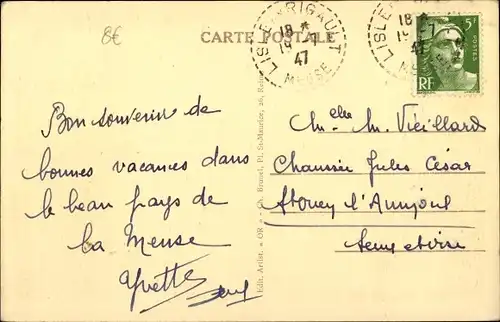 8€
CARTE POSTALE
LISLE RIGAULT
18 *
19 - 7
47
MEUSE
LISLE
18 *
19 - 7
47
MEUSE
5F
POSTES
RF
Bon souvenir de
bonnes vacances dans
le beau pays de
la Meuse
Yvette
Mlle M. Vieillard
Chaussée Jules César
l'Aumône
Seine et Oise
Edit. Artist. « OR » - Ch. Brunel, Pl. St-Maurice, 26,